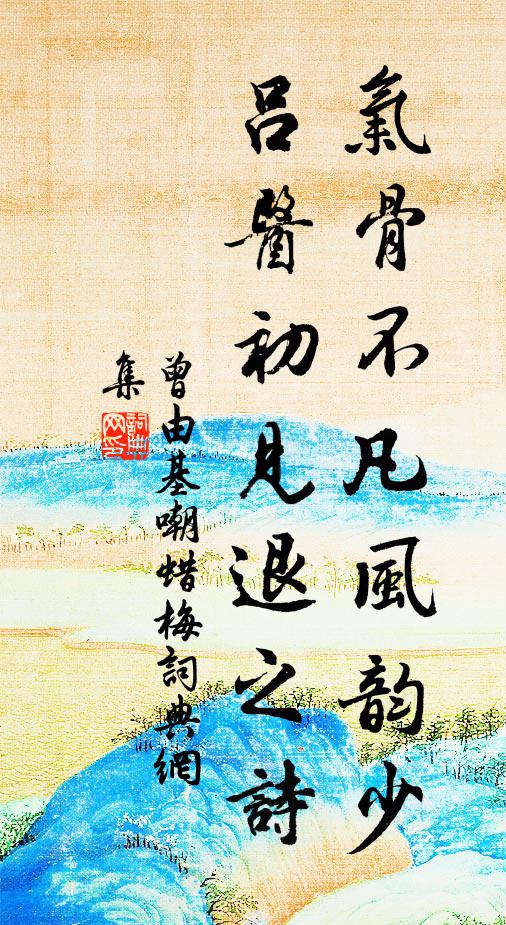 氣骨不凡風韵少
呂醫初見退之詩
曾由基嘲蜡梅詞典網
集
詞典網印